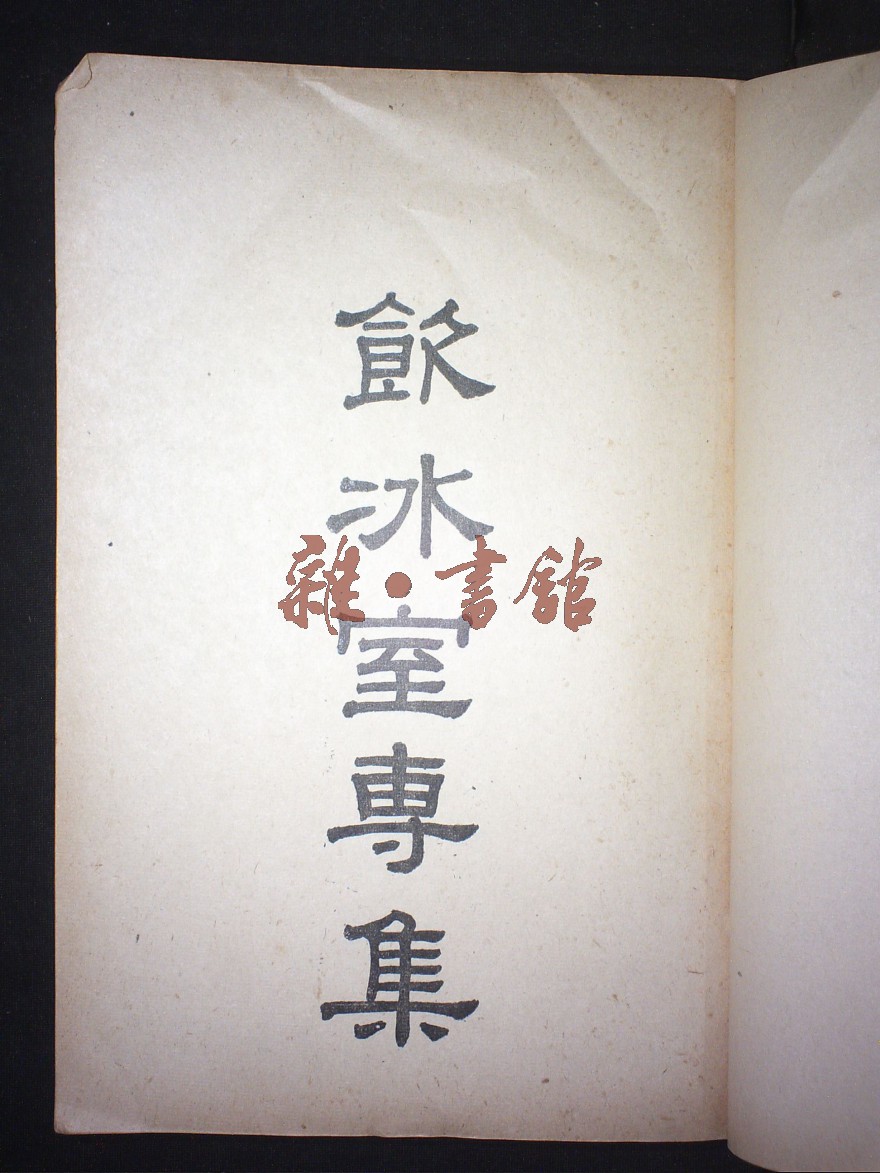 飲冰室專集
雜·書館